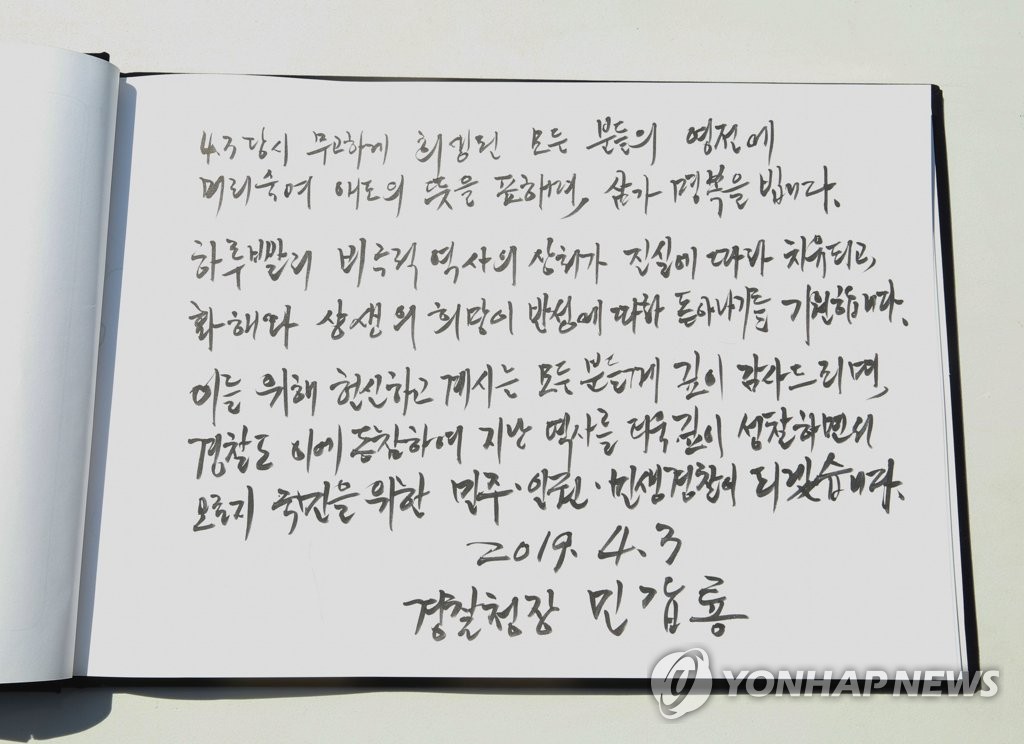 4.3 당시 무고하게 희생된 모든 분들의 영전에
머리숙여 애도의 뜻을 표하며, 삼가 명복을 빕니다.
하루빨리 비극적 역사의 상처가 진실에 따라 치유되고,
화해와 상생의 희망이 반성에 따라 돋아나기를 기원합니다.
이를 위해 헌신하고 계시는 모든 분들게 깊이 감사드리며,
경찰도 이에 동참하여 지난 역사를 더욱 깊이 성찰하면서
오로지 국민을 위한 민주·인권·민생경찰이 되겠습니다.
2019. 4. 3
경찰청장 민갑룡
YONHAPNEWS